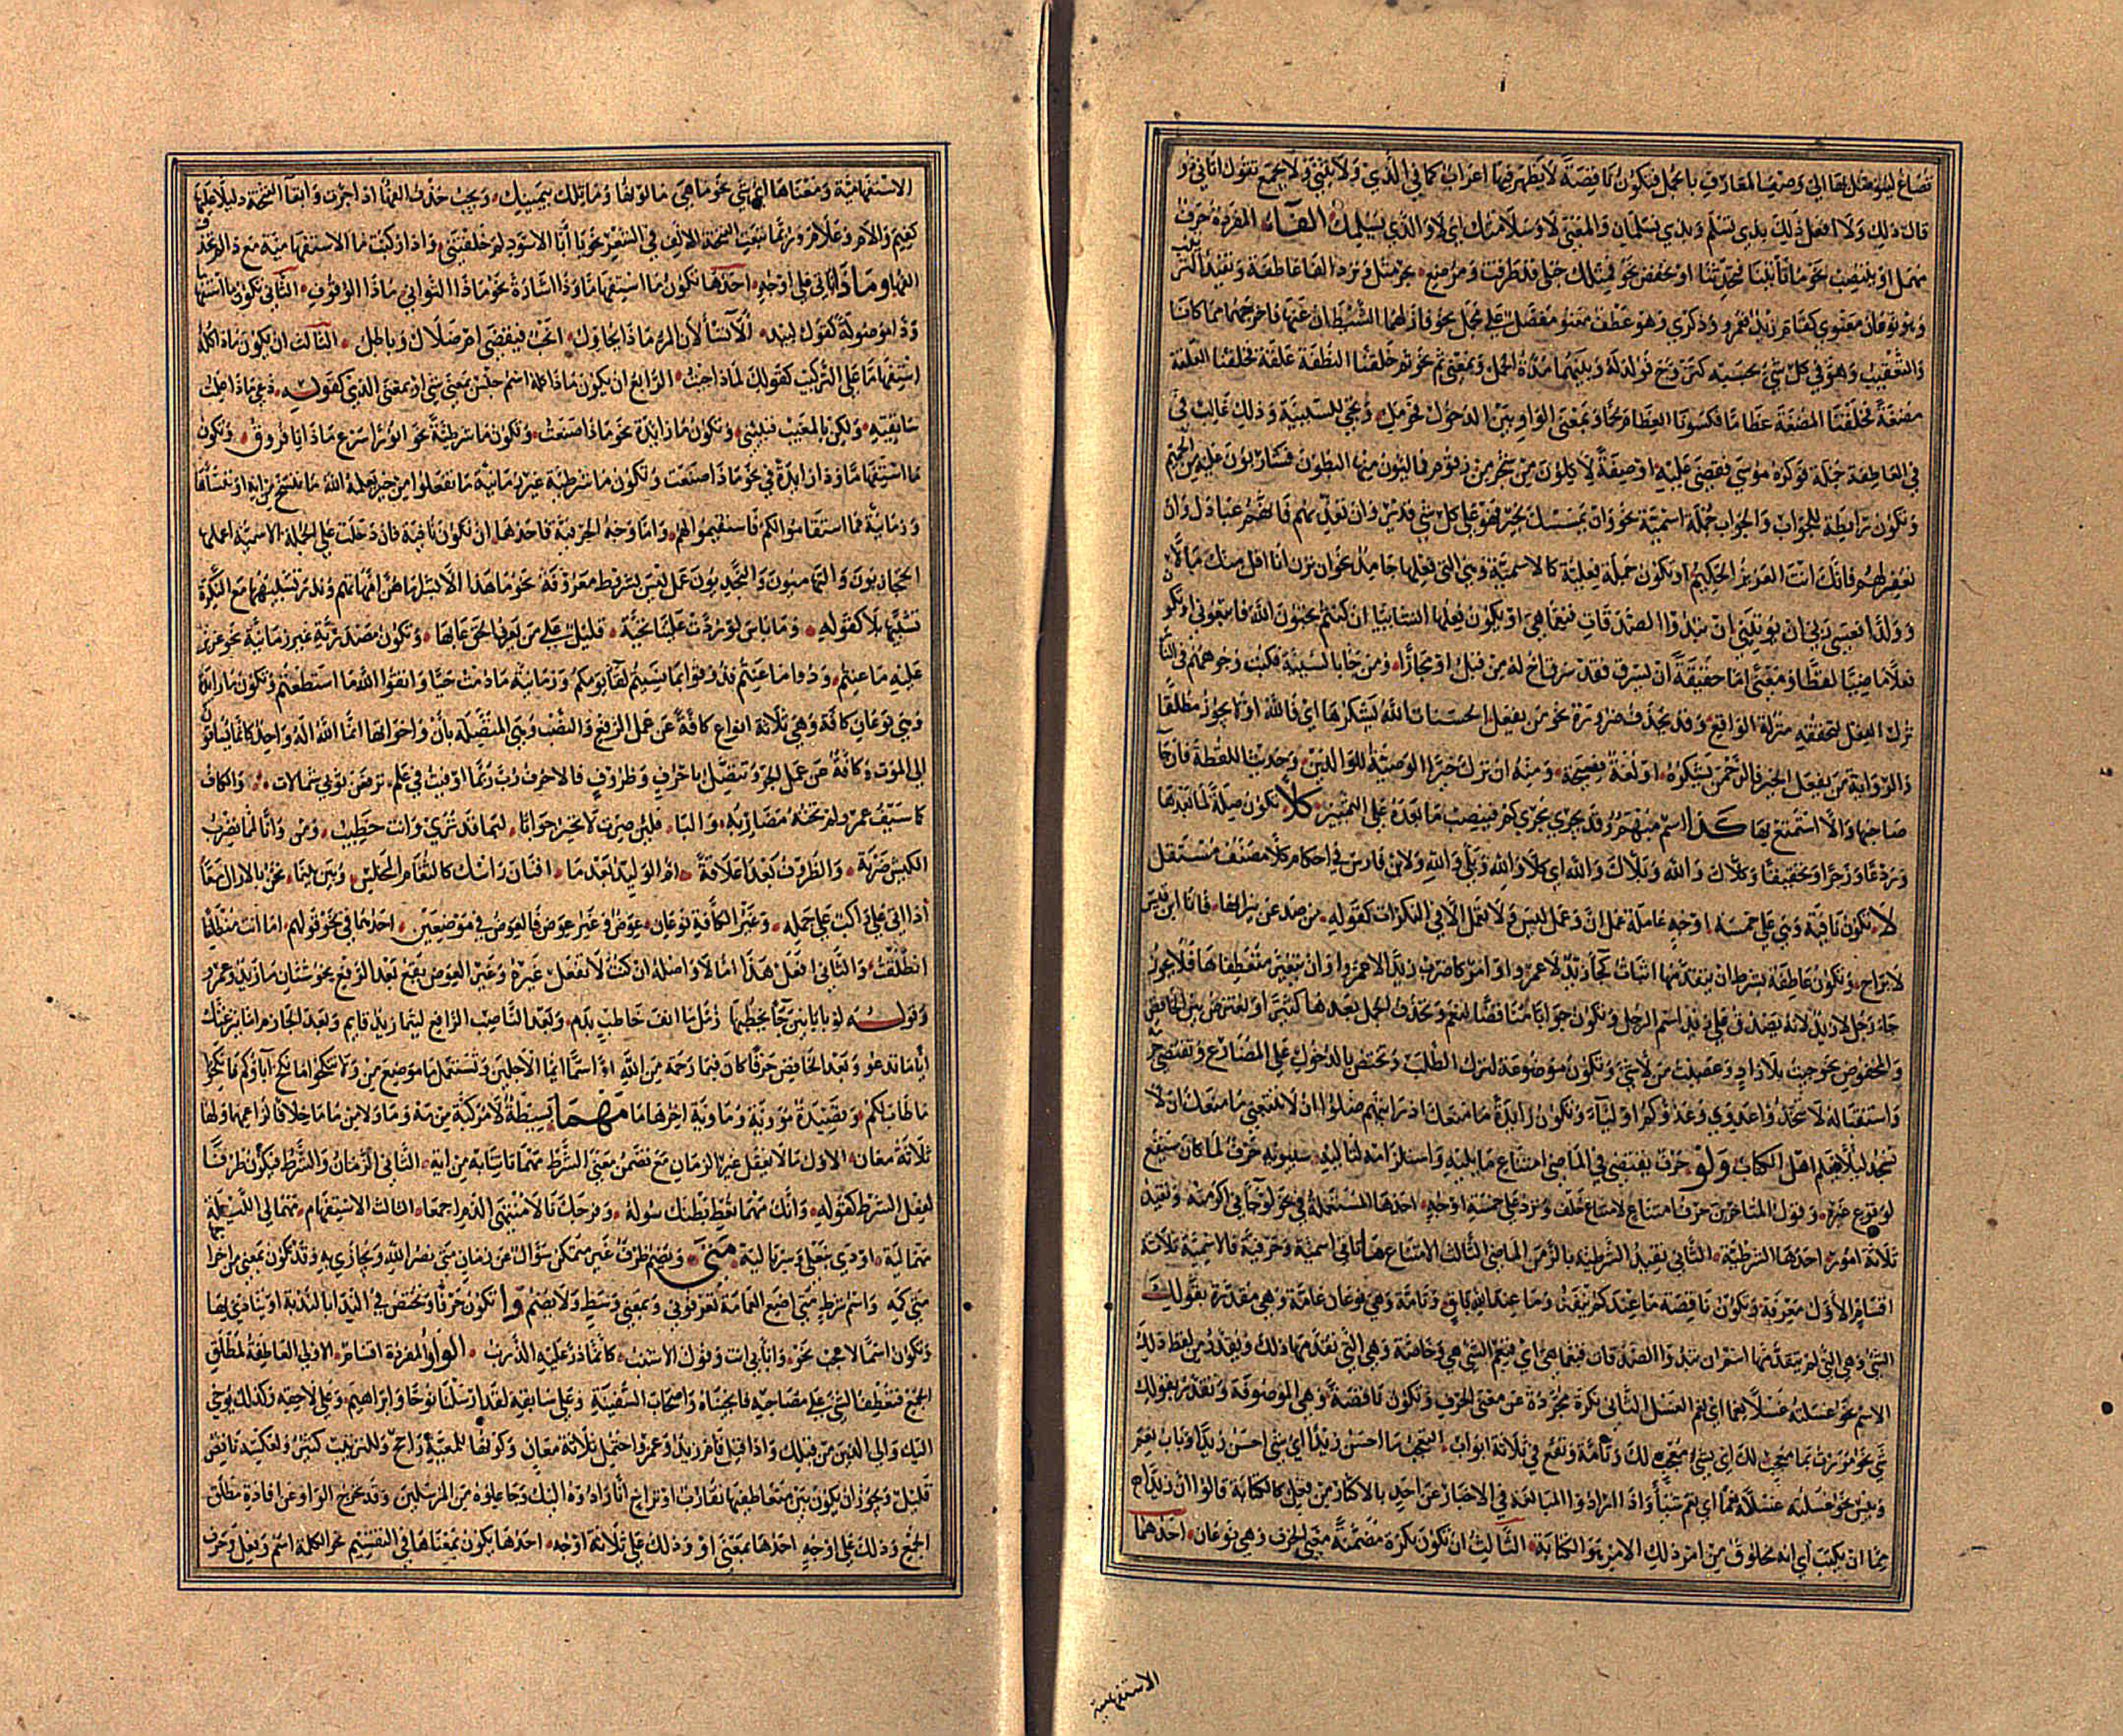 تصاغ ليتوصل بها الى وصف المعارف بالجمل فتكون ناقصة لا يظهر فيها اعراب كما في الذي ولا يثنى ولا يجمع تقول اتاني ذو
قال ذلك ولا افعل ذلك بذي تسلم وبذي تسلمان والمعنى لا وسلامتك اي لا والذي يسلمك الفاء المفردة حرف
مهمل او ينصب نحو ما تأتينا فتحدثنا او يخفض نحو فمثلك حبلى قد طرقت ومرضع نحو مثل وترد الفا عاطفة وتفيد الترتيب
وهو نوعان معنوي كقام زيد فعمرو وذكري وهو عطف مفصل على مجمل نحو فازلهما الشيطان عنها فاخرجهما مما كانا
والتعقيب وهو في كل شيء بحسبه كتزوج فولد له وبينهما مدة الحمل وبمعنى ثم نحو ثم خلقنا النطفة علقة فخلقنا العلقة
مضغة فخلقنا المضغة عظاما فكسونا العظام لحما وبمعنى الواو بين الدخول فحومل وتجي للسببية وذلك غالب في
في العاطفة جملة فوكزه موسى فقضى عليه او صفة لاكلون من شجر من زقوم فمالئون منها البطون فشاربون عليه من الحميم
وتكون رابطة للجواب والجواب جملة اسمية نحو وان يمسسك بخير فهو على كل شي قدير وان تعذبهم فانهم عبادك وان
تغفر لهم فانك انت العزيز الحكيم او تكون جملة فعلية كالاسمية وهي التي فعلها جامد نحو ان ترن انا اقل منك مالا
وولدا فعسى ربي ان يؤتيني ان تبدوا الصدقات فنعما هي او يكون فعلها انشائيا ان كنتم تحبون الله فاتبعوني او تكون
فعلا ماضيا لفظا ومعنى اما حقيقة ان يسرق فقد سرق اخ له من قبل او مجازا ومن جا بالسيئة فكبت وجوههم في النار
نزل الفعل لتحققه منزلة الواقع وقد يحذف ضرورة نحو من يفعل الحسنات الله يشكرها اي فالله او لا يجوز مطلقا
والرواية من يفعل الخير فالرحمن يشكره او لغة فصيحة ومنه ان ترك خيرا الوصية للوالدين وحديث اللقطة فان جا
صاحبها والا استمتع بها كذا اسم مبهم وقد يجري مجرى كم فينصب ما بعده على التمييز كلا تكون صلة لما بعدها
وردعا وزجرا وتحقيقا وكلاك والله وبلاك والله اي كلا والله وبلى والله ولابن فارس في احكام كلا مصنف مستقل
لا تكون نافية وهي على خمسة اوجه عاملة عمل ان وعمل ليس ولا تعمل الا في النكرات كقوله من صد عن نيرانها فانا ابن قيس
لا براح وتكون عاطفة بشرط ان يتقدمها اثبات كجا زيد لا عمرو او امر كاضرب زيدا لا عمرا وان يتغير متعاطفاها فلا يجوز
جاء رجل لا زيد لانه يصدق على زيد اسم الرجل وتكون جوابا مناقضا لنعم وتحذف الجمل بعدها كثيرا او تعترض بين الخافض
والمخفوض نحو جيت بلا زاد وغضبت من لا شي وتكون موضوعة لترك الطلب وتختص بالدخول على المضارع وتقتضي جزمه
واستقباله لا تتخذوا عدوي وعدوكم اوليآء وتكون زايدة ما منعك اذ رايتهم ضلوا ان لا تتبعني ما منعك ان لا
تسجد ليلا يعلم اهل الكتاب ولو حرف يقتضي في الماضي امتناع ما يليه واستلزامه لتاليه سيبويه حرف لما كان سيقع
لوقوع غيره وقول المتاخرين حرف امتناع لامتناع خلف وترد على خمسة اوجه احدها المستعملة في نحو لو جآني اكرمته وتفيد
ثلاثة امور احدها الشرطية الثاني تقييد الشرطية بالزمن الماضي الثالث الامتناع ما تاتي اسمية وحرفية فالاسمية ثلاثة
اقسام الاول معرفة وتكون ناقصة ما عندكم ينفد وما عند الله باق وتامة وهي نوعان عامة وهي مقدرة بقولك
الشي وهي التي لم يتقدمها اسم ان تبدوا الصدقات فنعما هي اي فنعم الشي هي وخاصة وهي التي تقدمها ذلك ويقدر من لفظ ذلك
الاسم نحو غسلته غسلا نعما اي نعم الغسل الثاني نكرة مجردة عن معنى الحرف وتكون ناقصة وهي الموصوفة وتقدر بقولك
شي نحو مررت بما معجب لك اي بشيء معجب لك وتامة وتقع في ثلاثة ابواب التعجب ما احسن زيدا اي شي احسن زيدا وباب نعم
وبئس نحو غسلته غسلا نعما اي نعم شيئا واذا ارادوا المبالغة في الاخبار عن احد بالاكثار من فعل كالكتابة قالوا ان زيدا
مما ان يكتب اي انه مخلوق من امر ذلك الامر هو الكتابة الثالث ان تكون نكرة مضمنة معنى الحرف وهي نوعان احدهما
الاستفهامية
الاستفهامية ومعناها اي شي نحو ما هي ما لونها وما تلك بيمينك ويجب حذف الفها اذا جرت وابقآ الفتحة دليلا عليها
كفيم والام وعلام وربما تبعت الفتحة الالف في الشعر نحو يا أبا الاسود لم خلفتني واذا ركبت ما الاستفهامية مع ذا لم تحذف
الفها وماذا تاتي على اوجه احدها تكون ما استفهاما وذا اشارة نحو ماذا التواني ماذا الوقوف الثاني تكون ما استفهاما
وذا موصولة كقول لبيد ألا تسألان المرء ماذا يحاول انحب فيقضى ام ضلال وباطل الثالث ان يكون ماذا كله
استفهاما على التركيب كقولك لماذا جئت الرابع ان يكون ماذا كله اسم جنس بمعنى شي او بمعنى الذي كقوله دعي ماذا علمت
ساتقيه ولكن بالمغيب فنبئني وتكون ما زايدة نحو ماذا صنعت وتكون ما شرطية نحو انورا سرع ماذا يا فروق وتكون
ما استفهاما وذا زايدة في نحو ماذا صنعت وتكون ما شرطية غير زمانية ما تفعلوا من خير يعلمه الله ما ننسخ من اية او ننساها
وزمانية فما استقاموا لكم فاستقيموا لهم واما وجه الحرفية فاحدها ان تكون نافية فان دخلت على الجملة الاسمية اعملها
الحجازيون والتهاميون والنجديون عمل ليس بشروط معروفة نحو ما هذا الا بشرا ما هن امهاتهم وندر تشبيهها مع النكرة
تشبيها بلا كقوله وما باس لو ردت علينا تحية قليل على من يعرف الحق عابها وتكون مصدرية غير زمانية نحو عزيز
عليه ما عنتم ودوا ما عنتم فذوقوا بما نسيتم لقآ يومكم وزمانية ما دمت حيا واتقوا الله ما استطعتم وتكون ما زايدة
وهي نوعان كافة وهي ثلاثة انواع كافة عن عمل الرفع والنصب وهي المتصلة بان واخواتها انما الله اله واحد كانما يساقون
الى الموت وكافة عن عمل الجر وتتصل باحرف وظروف فالاحرف رب ربما اوفيت في علم ترفعن ثوبي شمالات والكاف
كما سيف عمرو لم تخنه مضاربه والبا فلئن صرت لا تحير جوابا لبما قد ترى وانت خطيب ومن وانا لمما نضرب
الكبش ضربة والظرف بعد اعلاقة ام الوليد بعد ما افنان راسك كالثغام المخلس وبين بينما نحن بالاراك معا
اذ اتى على راكب على جمله وغير الكافة نوعان عوض وغير عوض فالعوض في موضعين احدهما في نحو قولهم اما انت منطلقا
انطلقت والثاني افعل هذا اما لا واصله ان كنت لا تفعل غيره وغير العوض يقع بعد الرفع نحو شتان ما زيد وعمرو
وقوله لو بابانين جآ يخطبها زمل ما انف خاطب بدم وبعد الناصب الرافع ليتما زيد قايم وبعد الجازم اما ينزغنك
أيا ما تدعو وبعد الخافض حرفا كان فبما رحمة من الله او اسما ايما الاجلين وتستعمل ما موضع من ولا تنكحوا ما نكح آباؤكم فانكحوا
ما طاب لكم وقصيدة مووية وماوية اخرها ما مهما بسيطة لا مركبة من مه وما ولا من ما ما خلافا لزاعميها ولها
ثلاثة معان الاول ما لا يعقل غير الزمان مع تضمن معنى الشرط مهما تاتنا به من اية الثاني الزمان والشرط فيكون ظرفا
لفعل الشرط كقوله وانك مهما تعط بطنك سوله وفرجك نالا منتهى الذم اجمعا الثالث الاستفهام مهما لي الليلة
مهما ليه اودى بنعلي وسرباليه متى ويضم ظرف غير متمكن سؤال عن زمان متى نصر الله ويجازى به وقد تكون بمعنى من اخرجها
متى كمه واسم شرط متى اضع العمامة تعرفوني وبمعنى وسط ولا يضم وا تكون حرفا وتختص في النداء بالندبة او ينادى بها
وتكون اسما لاعجب نحو وا بأبي انت وفوك الاشنب كانما ذر عليه الزرنب الواو المفردة اقسام الاولى العاطفة لمطلق
الجمع فتعطف الشي على مصاحبه فانجيناه واصحاب السفينة وعلى سابقه لقد ارسلنا نوحا وابراهيم وعلى لاحقه وكذلك يوحي
اليك والى الذين من قبلك واذا قيل قام زيد وعمرو احتمل ثلاثة معان وكونها للمعية راجح وللترتيب كثير ولعكسه
قليل ويجوز ان يكون بين متعاطفيها تقارب او تراخ انا رادوه اليك وجاعلوه من المرسلين وقد تخرج الواو عن افادة مطلق
الجمع وذلك على اوجه احدها بمعنى او وذلك على ثلاثة اوجه احدها يكون بمعناها في التقسيم نحو الكلمة اسم وفعل وحرف